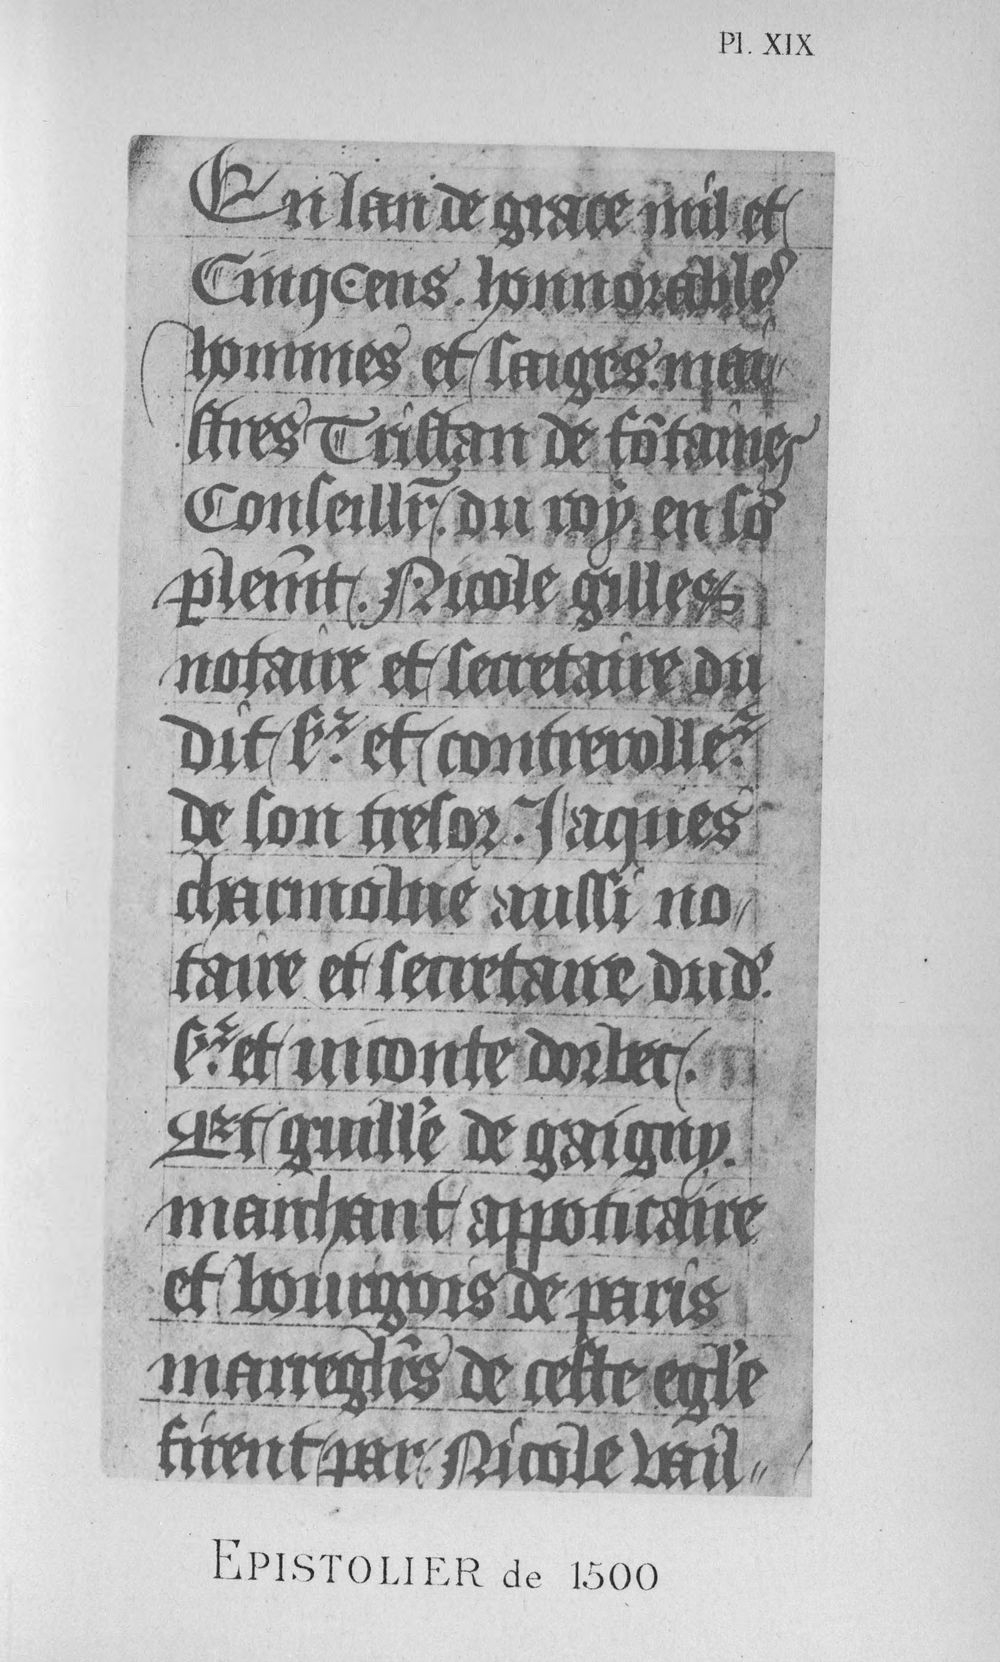 Pl. XIX
En lan de grace mil et
Cinq Cens. honnorables
hommes et saiges. mai
stres Tristan de fõtaines
Conseillr̃. du roy en so
plem̃t. Nicole gilles
notaire et secretaire du
dit sr. et contreroller.
de son tresor. Jaques
charmolue aussi no
taire et secretaire dud.
sr. et viconte dorbec.
Et guill'e de gaigny.
marchant appoticaire
et bourgois de paris
marregl'rs de ceste egl'e
firent par Nicole vail
EPISTOLIER de 1500